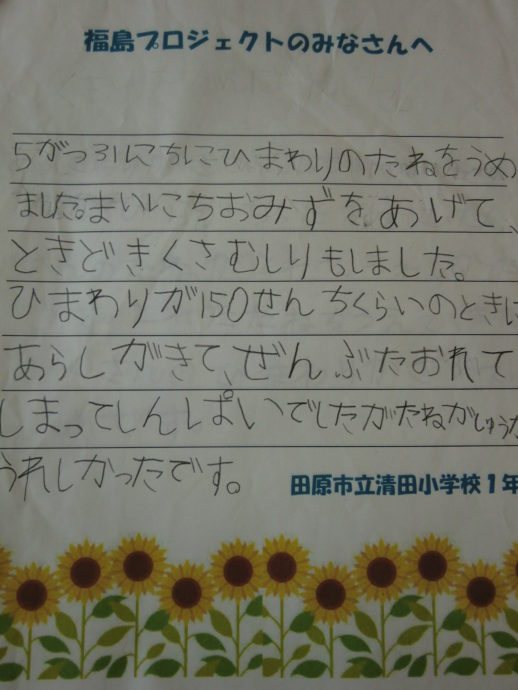 福島プロジェクトのみなさんへ
5がつ31にちにひまわりのたねをうめ
ました。まいにちおみずを、あげて、
ときどきくさむしりもしました。
ひまわりが150せんちくらいのときに
あらしがきて、ぜんぶたおれて
しまってしんぱいでしたがたねがしゅうか
うれしかったです。
田原市立清田小学校1年